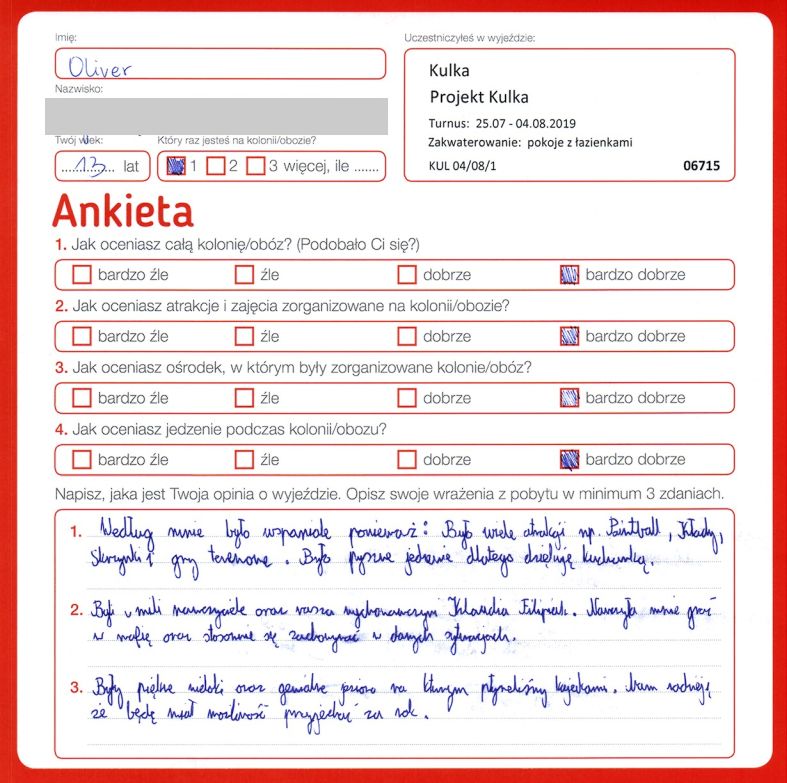 Imię:
Oliver
Nazwisko:
Twój wiek:
13 lat
Który raz jesteś na kolonii/obozie?
1 2 3 więcej, ile .......
Uczestniczyłeś w wyjeździe:
Kulka
Projekt Kulka
Turnus: 25.07 - 04.08.2019
Zakwaterowanie: pokoje z łazienkami
KUL 04/08/1 06715
Ankieta
1. Jak oceniasz całą kolonię/obóz? (Podobało Ci się?)
bardzo źle źle dobrze bardzo dobrze
2. Jak oceniasz atrakcje i zajęcia zorganizowane na kolonii/obozie?
bardzo źle źle dobrze bardzo dobrze
3. Jak oceniasz ośrodek, w którym były zorganizowane kolonie/obóz?
bardzo źle źle dobrze bardzo dobrze
4. Jak oceniasz jedzenie podczas kolonii/obozu?
bardzo źle źle dobrze bardzo dobrze
Napisz, jaka jest Twoja opinia o wyjeździe. Opisz swoje wrażenia z pobytu w minimum 3 zdaniach.
1. Według mnie było wspaniale ponieważ: Było wiele atrakcji np. Paintball, Kłady,
Skrzynki i gry terenowe. Było pyszne jedzenie dlatego dziękuję kucharką.
2. Byli mili nauczyciele oraz nasza wychowawczyni Klaudia Filipiak. Nauczyła mnie grać
w mafię oraz stosownie się zachowywać w danych sytuacjach.
3. Były piękne widoki oraz genialne jezioro na którym płyneliśmy kajakami. Mam nadzieję
że będę miał możliwość przyjechać za rok.